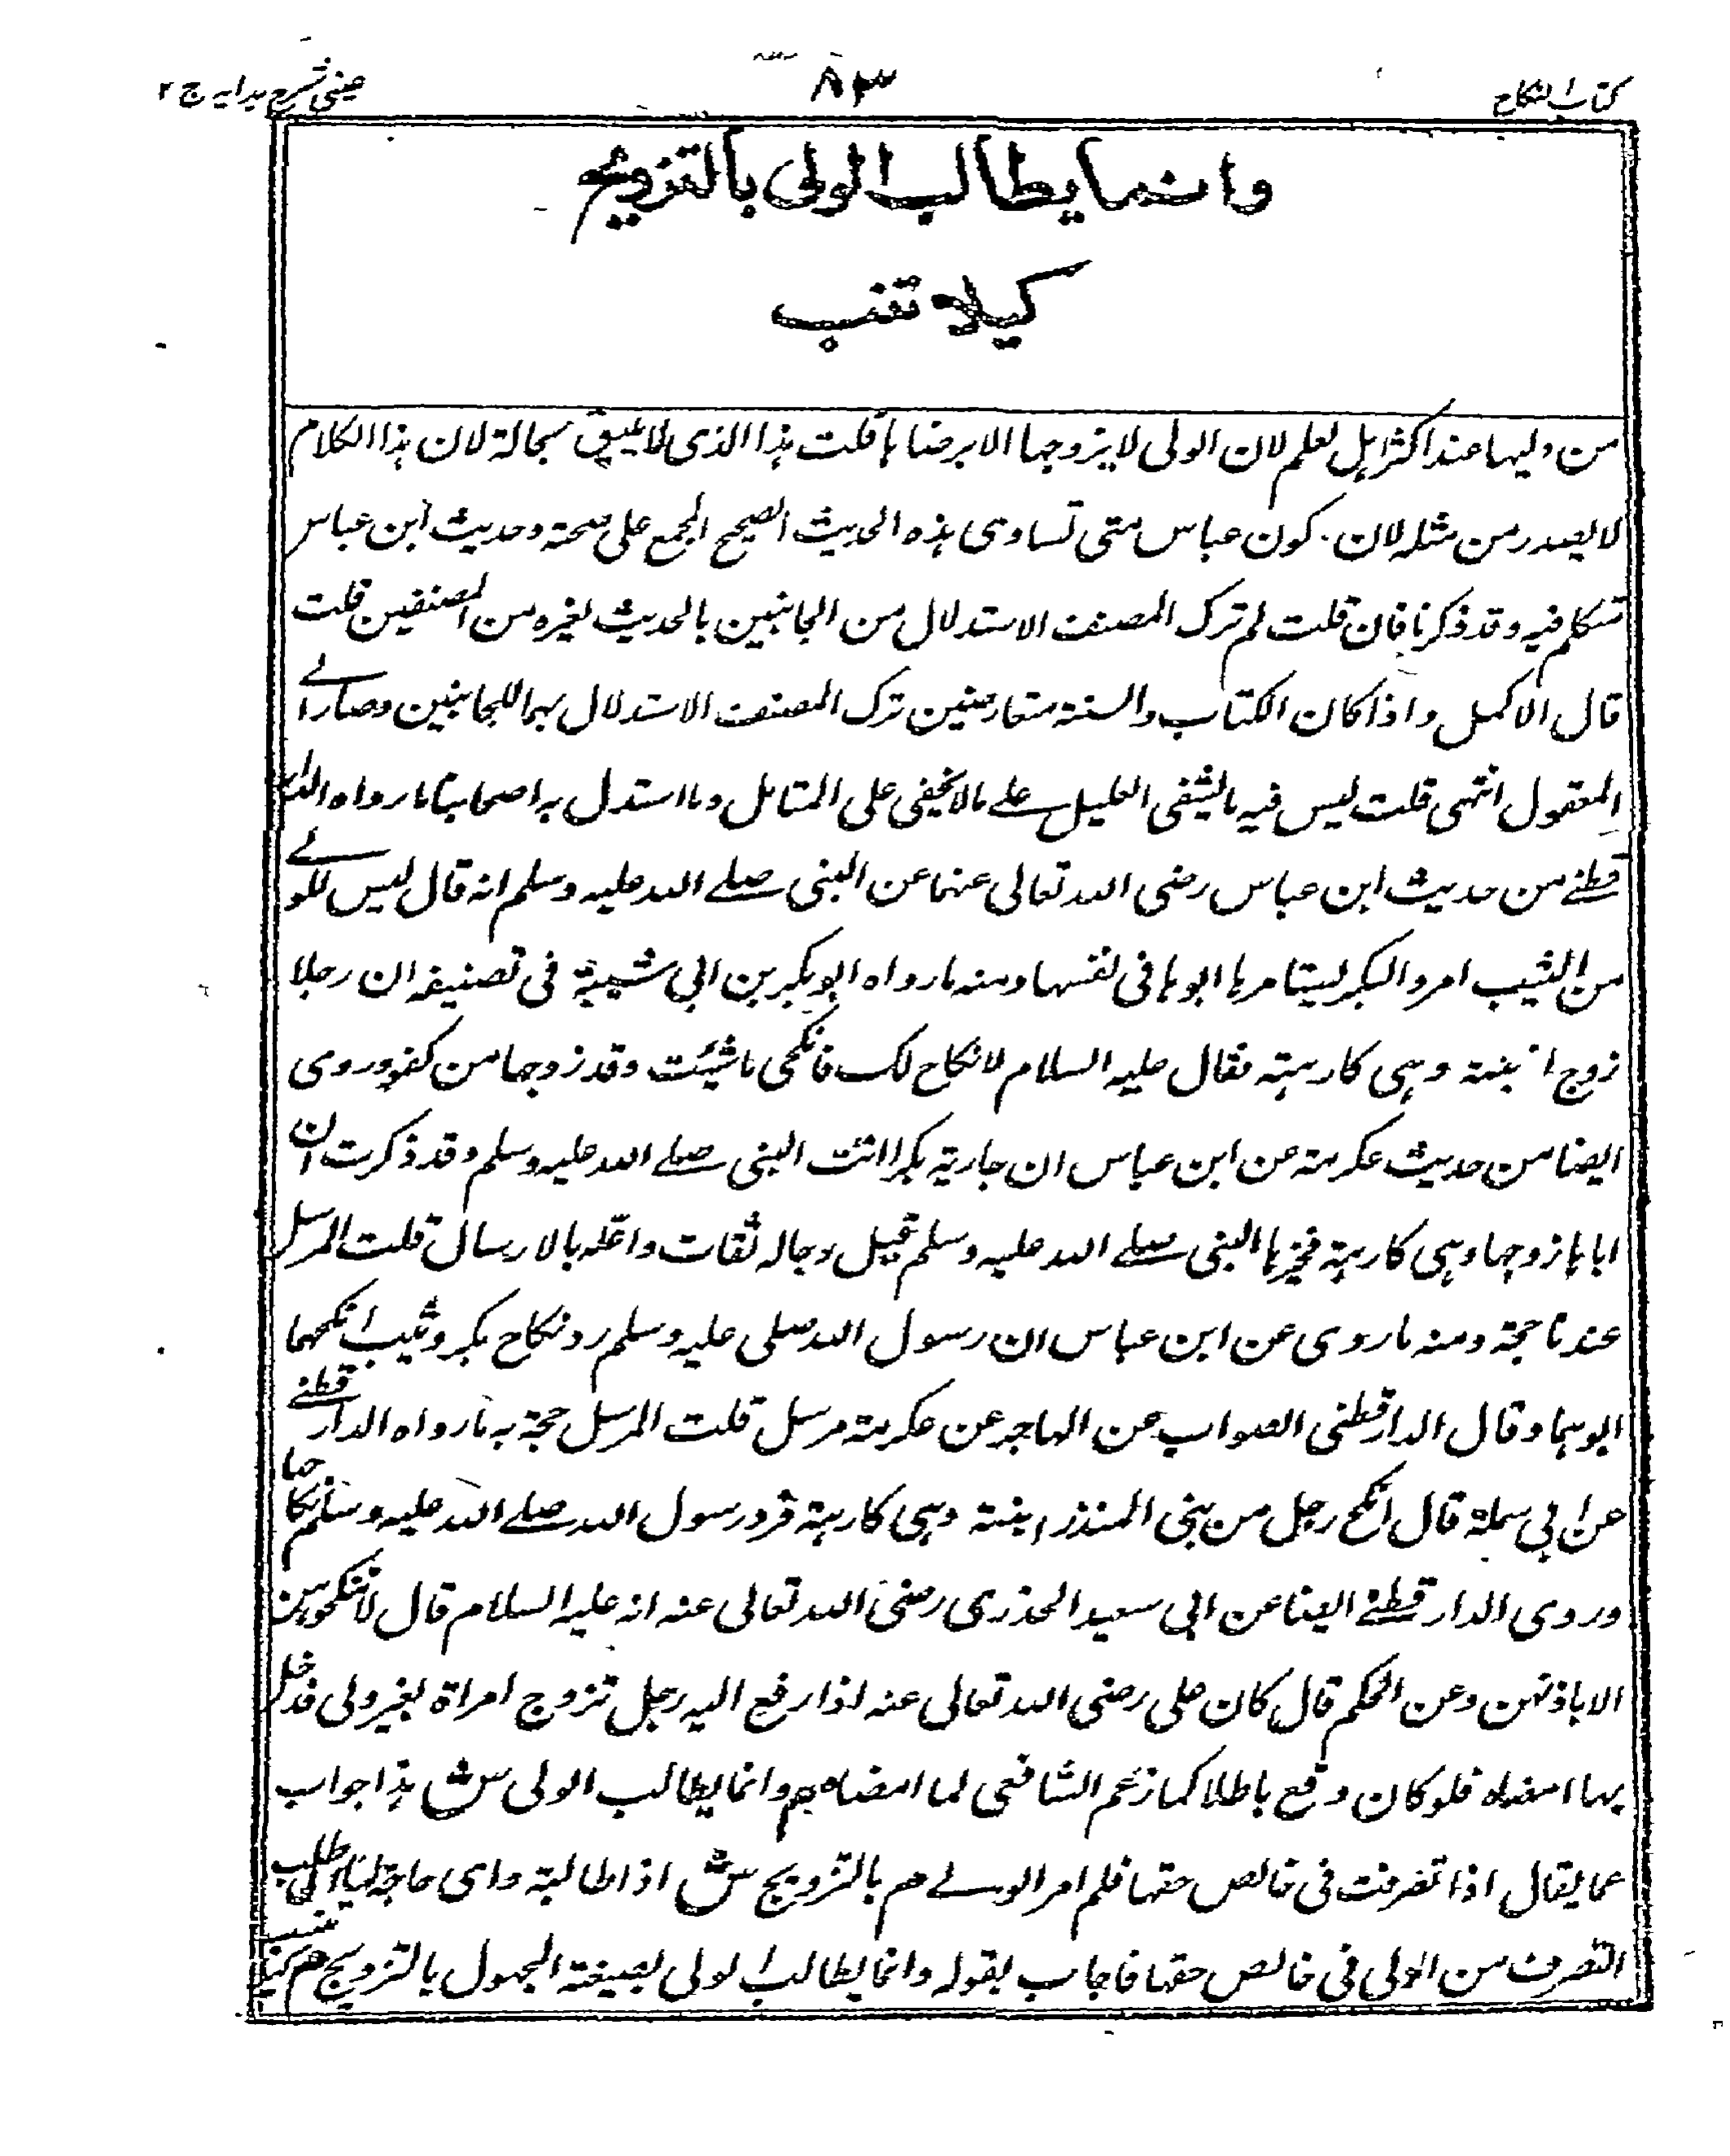 كتاب النكاح
٨٣
عينى شرح هدايه ج ٢
وانما يطالب الولى بالتزويج
كيلا تنسب
من وليها عند اكثر اهل لعلم لان الولى لا يزوجها الا برضاها قلت هذا الذى لا يليق بحالة لان هذا الكلام
لا يصدر من مثله لان كون عباس متى تساوى هذه الحديث الصحيح المجمع على صحته وحديث ابن عباس
تتكلم فيه وقد ذكرنا فان قلت لم ترك المصنف الاستدلال من الجانبين بالحديث لغيره من المصنفين قلت
قال الاكمل واذا كان الكتاب والسنة متعارضين ترك المصنف الاستدلال بهما للجانبين وصارا لے
المعقول انتهى قلت ليس فيه ما يشفى العليل علے ما لا يخفى على المتامل وما استدل به اصحابنا ما رواه الدار
قطنے من حديث ابن عباس رضى الله تعالى عنهما عن النبى صلے الله عليه وسلم انه قال ليس للولے
من الثيب امر والبكر ليستامرها ابوها فى نفسها ومنه ما رواه ابو بكر بن ابى شيبة فى تصنيفه ان رجلا
زوج ابنته وهى كارهة فقال عليه السلام لا نكاح لك فانكحى ما شئت وقد زوجها من كفو وروى
ايضا من حديث عكرمة عن ابن عباس ان جارية بكرا اتت النبى صلے الله عليه وسلم وقد ذكرت ان
اباها زوجها وهى كارهة فخيرها النبى صلے الله عليه وسلم قيل رجاله ثقات واعله بالارسال قلت المرسل
عندنا حجة ومنه ما روى عن ابن عباس ان رسول الله صلى عليه وسلم رد نكاح بكر وثيب انكحهما
ابوهما وقال الدارقطنى الصواب عن المهاجر عن عكرمة مرسل قلت المرسل حجة به ما رواه الدارقطنے
عن ابى سلمة قال انكح رجل من بنى المنذر ابنته وهى كارهة فرد رسول الله صلے الله عليه وسلم نكاحها
وروى الدارقطنے ايضا عن ابى سعيد الخدرى رضى الله تعالى عنه انه عليه السلام قال لا تنكحوهن
الا باذنهن وعن الحكم قال كان على رضى الله تعالى عنه اذا رفع اليه رجل تزوج امراة بغير ولى فدخل
بها امضاه فلو كان وقع باطلا كما زعم الشافعى لما امضاه م وانما يطالب الولى ش هذا جواب
عما يقال اذا تصرفت فى خالص حقها فلم امر الولے م بالتزويج ش اذا طالبته واى حاجة لها الى طلب
التصرف من الولى فى خالص حقها فاجاب بقوله وانما يطالب الولى بصيغة المجهول بالتزويج م كيلا تنسب